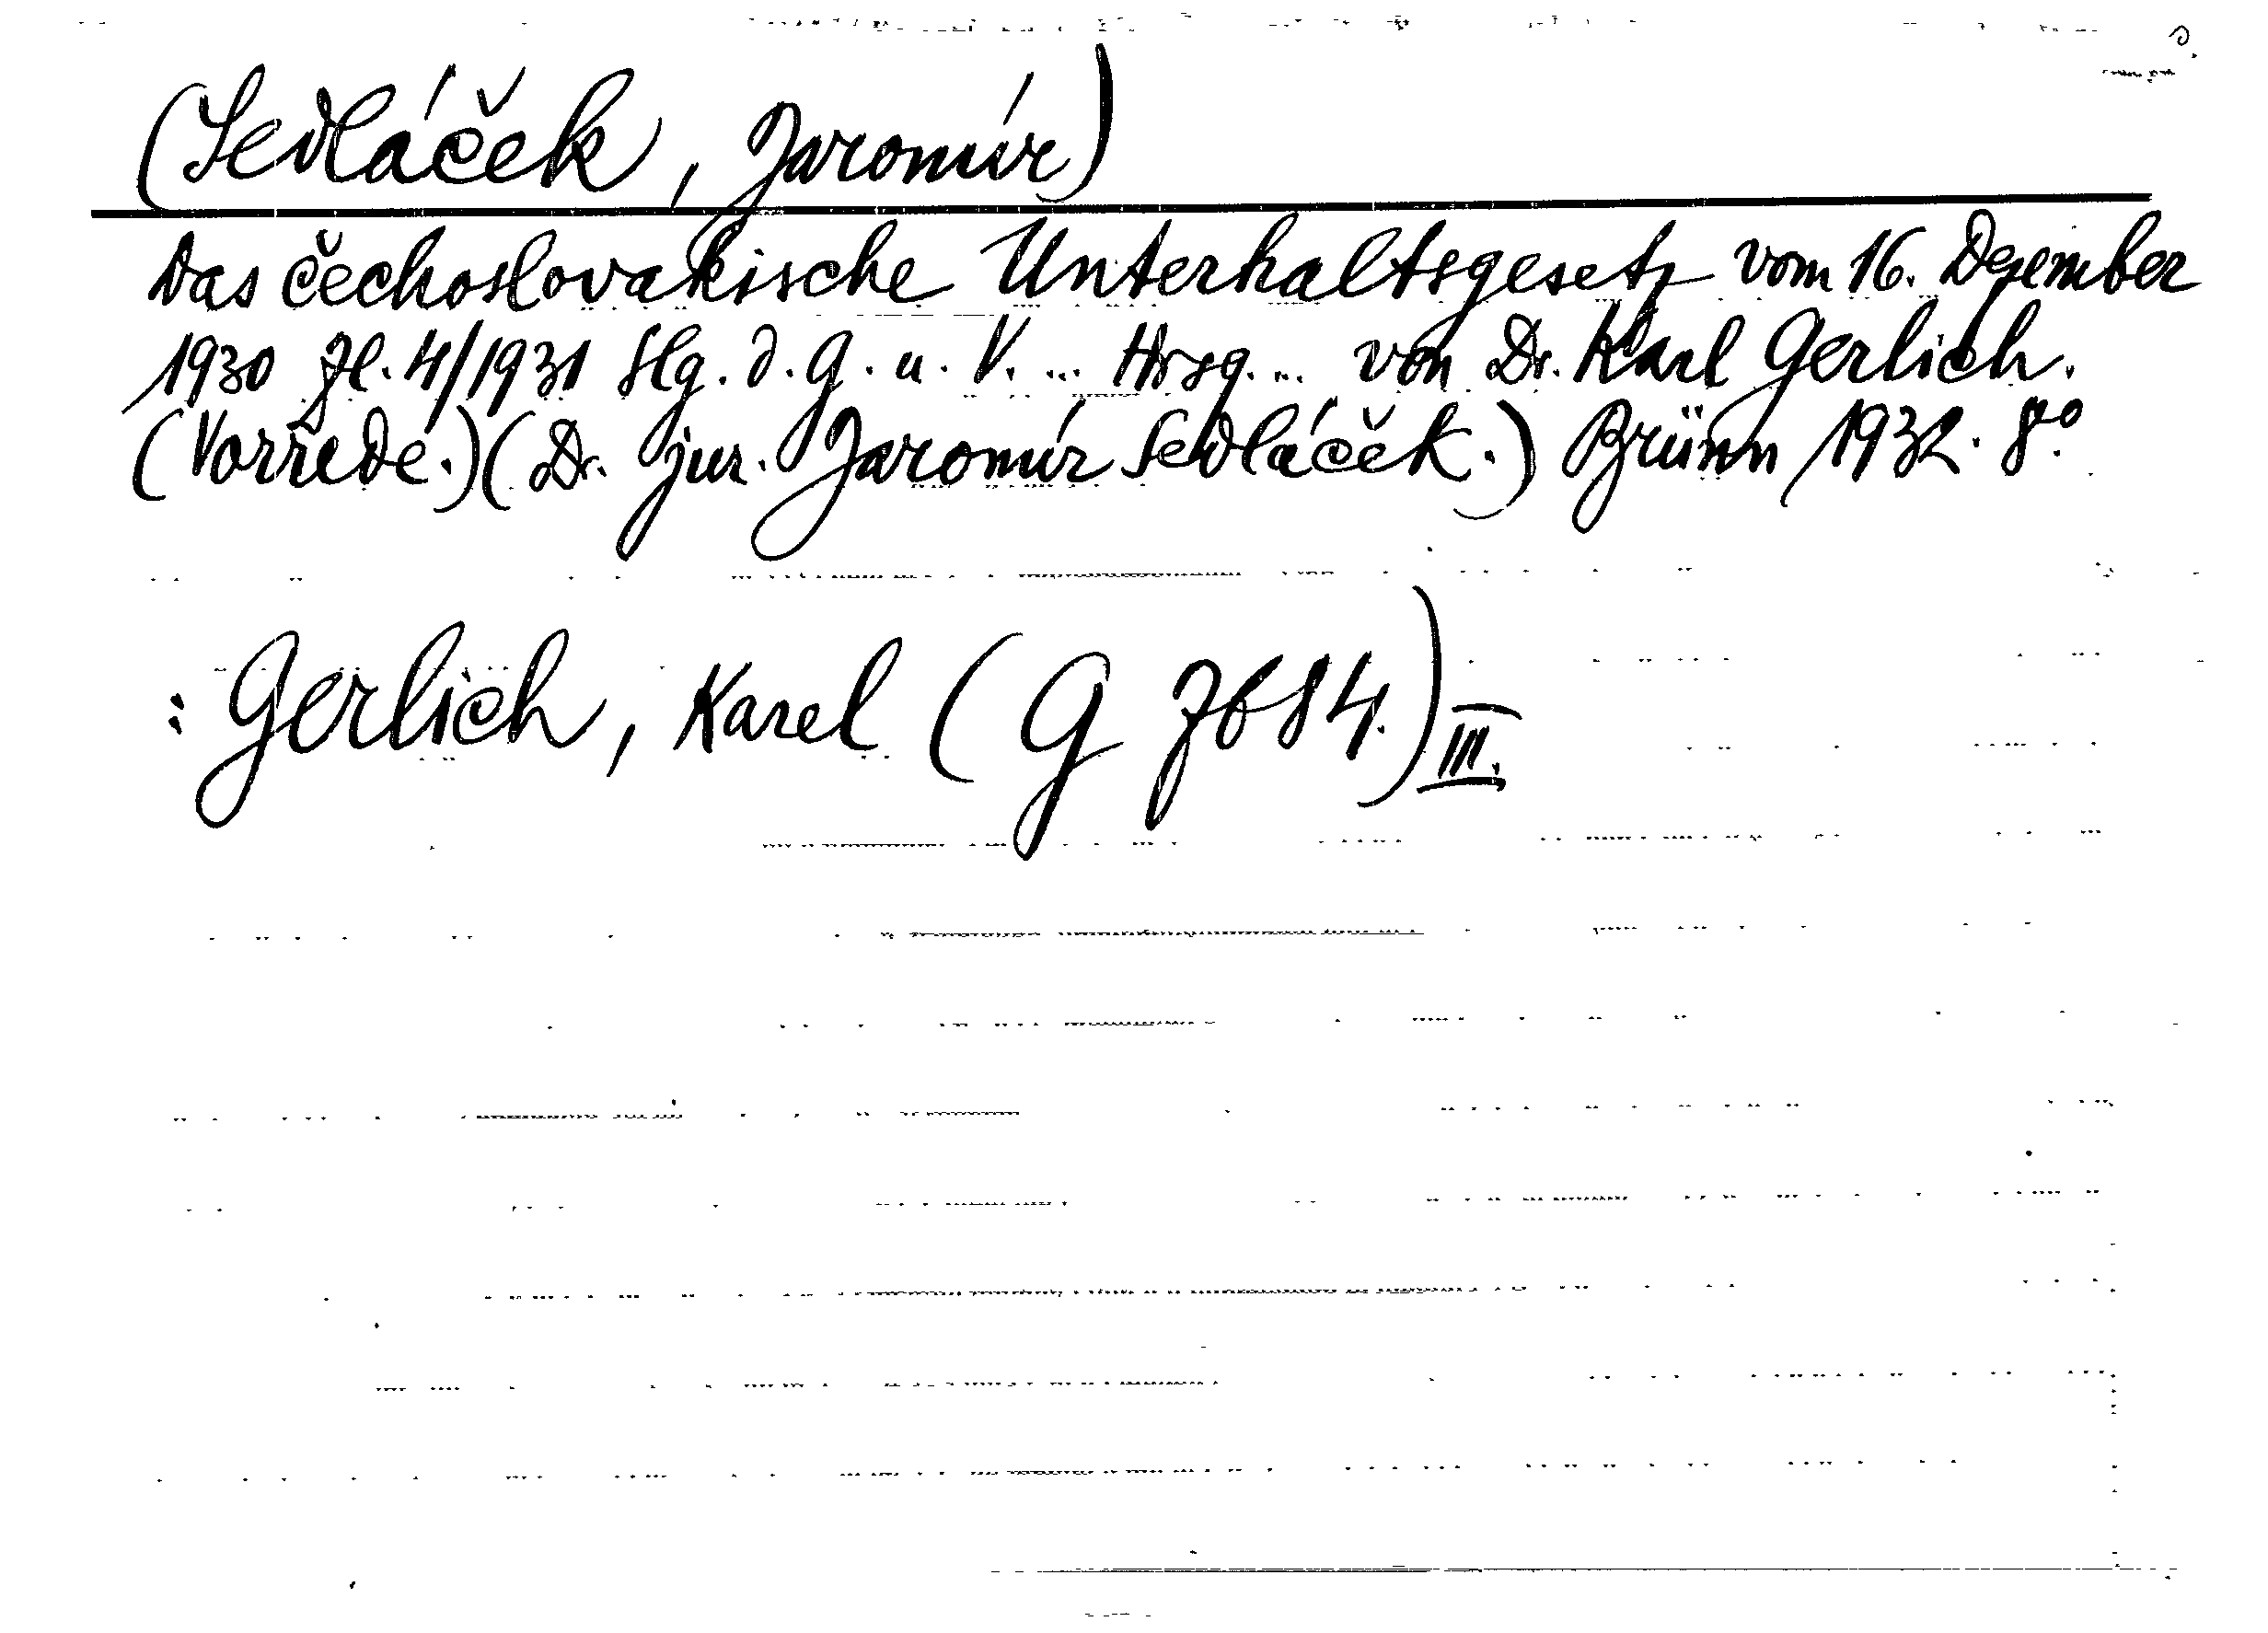 (Sedláček, Jaromír)
Das čechoslovakische Unterhaltsgesetz vom 16. Dezember
1930 Zl. 4/1931 Slg. d. G. u. V. ... Hrsg. ... von Dr. Karl Gerlich.
(Vorrede.) (Dr. jur. Jaromír Sedláček.) Brünn 1932. 8°.
: Gerlich, Karel (G 7684.) III.